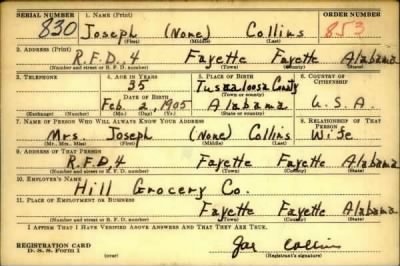 SERIAL NUMBER 1. NAME (Print) ORDER NUMBER
830 Joseph (None) Collins 853
(First) (Middle) (Last)
2. ADDRESS (Print)
R.F.D. 4 Fayette Fayette Alabama
(Number and street or R. F. D. number) (Town) (County) (State)
3. TELEPHONE 4. AGE IN YEARS 5. PLACE OF BIRTH 6. COUNTRY OF CITIZENSHIP
35 Tuskaloosa County
DATE OF BIRTH (Town or county)
Feb. 2, 1905 Alabama U.S.A.
(Exchange) (Number) (Mo.) (Day) (Yr.) (State or country)
7. NAME OF PERSON WHO WILL ALWAYS KNOW YOUR ADDRESS 8. RELATIONSHIP OF THAT PERSON
Mrs. Joseph (None) Collins Wife
(Mr., Mrs., Miss) (First) (Middle) (Last)
9. ADDRESS OF THAT PERSON
R.F.D. 4 Fayette Fayette Alabama
(Number and street or R. F. D. number) (Town) (County) (State)
10. EMPLOYER'S NAME
Hill Grocery Co.
11. PLACE OF EMPLOYMENT OR BUSINESS
Fayette Fayette Alabama
(Number and street or R. F. D. number) (Town) (County) (State)
I AFFIRM THAT I HAVE VERIFIED ABOVE ANSWERS AND THAT THEY ARE TRUE.
REGISTRATION CARD
D. S. S. Form 1 Joe Collins
(Registrant's signature)